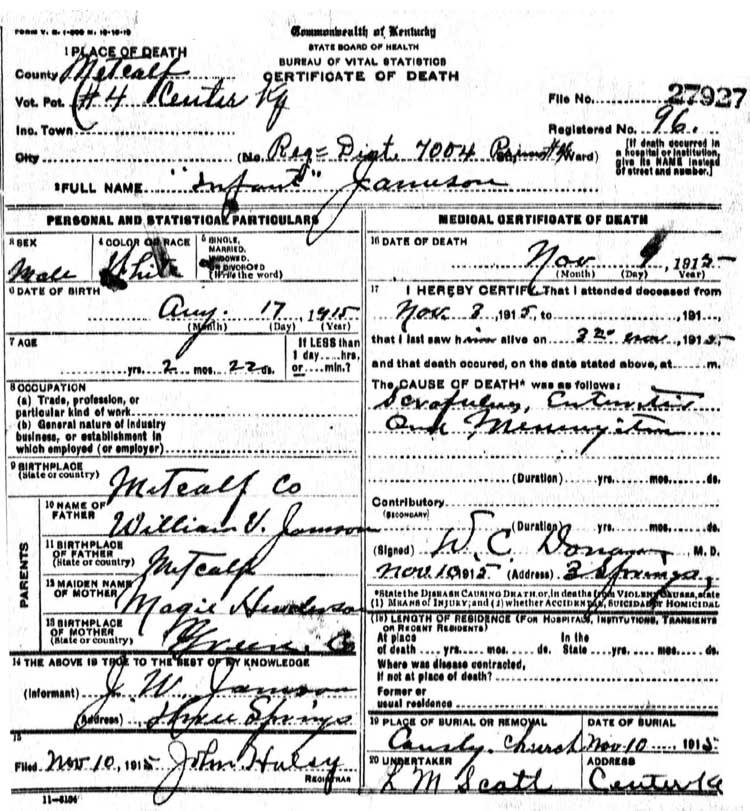 FORM V. S. 1-200 M. 10-10-10
Commonwealth of Kentucky
STATE BOARD OF HEALTH
BUREAU OF VITAL STATISTICS
CERTIFICATE OF DEATH
1 PLACE OF DEATH
County Metcalf
Vot. Pct. #4 Center Ky
File No. 27927
Inc. Town
Registered No. 96.
City (No. Reg= Dist. 7004 Ward)
[If death occurred in a hospital or institution, give its NAME instead of street and number.]
2 FULL NAME "Infant" Jamison
PERSONAL AND STATISTICAL PARTICULARS
3 SEX
Male
4 COLOR OR RACE
White
5 SINGLE, MARRIED, WIDOWED, OR DIVORCED (Write the word)
6 DATE OF BIRTH
Aug. 17 1915
(Month) (Day) (Year)
7 AGE
yrs. 2 mos. 22 ds.
If LESS than 1 day....hrs, or....min.?
8 OCCUPATION
(a) Trade, profession, or particular kind of work
(b) General nature of industry business, or establishment in which employed (or employer)
9 BIRTHPLACE
(State or country)
Metcalf Co
PARENTS
10 NAME OF FATHER
William V. Jamison
11 BIRTHPLACE OF FATHER
(State or country)
Metcalfe
12 MAIDEN NAME OF MOTHER
Magie Henderson
13 BIRTHPLACE OF MOTHER
(State or country)
Green. Co
14 THE ABOVE IS TRUE TO THE BEST OF MY KNOWLEDGE
(Informant) J W Jamison
(Address) Three Springs
15
Filed Nov 10, 1915 John Hulsy
REGISTRAR
11-5184
MEDICAL CERTIFICATE OF DEATH
16 DATE OF DEATH
Nov 9 1915
(Month) (Day) Year)
17 I HEREBY CERTIFY That I attended deceased from
Nov. 3 1915, to 191
that I last saw him alive on 3rd Nov, 1915
and that death occured, on the date stated above, at m.
The CAUSE OF DEATH* was as follows:
Scrofulus, Enteritis
and Meningitis
(Duration) yrs. mos. ds.
Contributory
(SECONDARY)
(Duration) yrs. mos. ds.
(Signed) W. C. Donan, M. D.
Nov. 10 1915 (Address) 3 Springs,
*State the DISEASE CAUSING DEATH, or, in deaths from VIOLENT CAUSES, state
(1) MEANS OF INJURY; and (2) whether ACCIDENTAL, SUICIDAL or HOMICIDAL
(18) LENGTH OF RESIDENCE (FOR HOSPITALS, INSTITUTIONS, TRANSIENTS OR RECENT RESIDENTS)
At place of death yrs. mos. ds. In the State yrs. mos. ds.
Where was disease contracted,
If not at place of death?
Former or
usual residence
19 PLACE OF BURIAL OR REMOVAL
Church
DATE OF BURIAL
Nov 10 1915
20 UNDERTAKER
L M Scott
ADDRESS
Center Ky